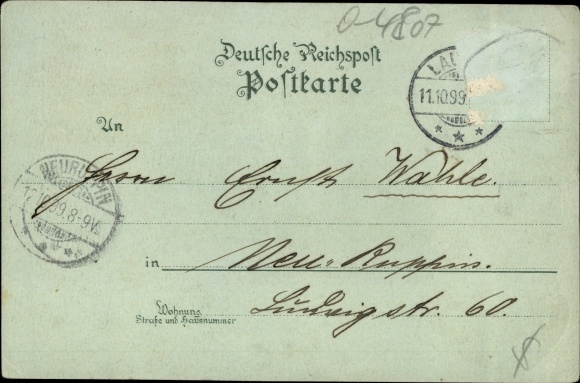 O-4807
Deutsche Reichspost
Postkarte
LAU
11.10.99
An
Herrn Ernst Wahle.
NEURUPPIN
99.8-9V.
in Neu-Ruppin.
Wohnung
Straße und Hausnummer
Ludwigstr. 60.